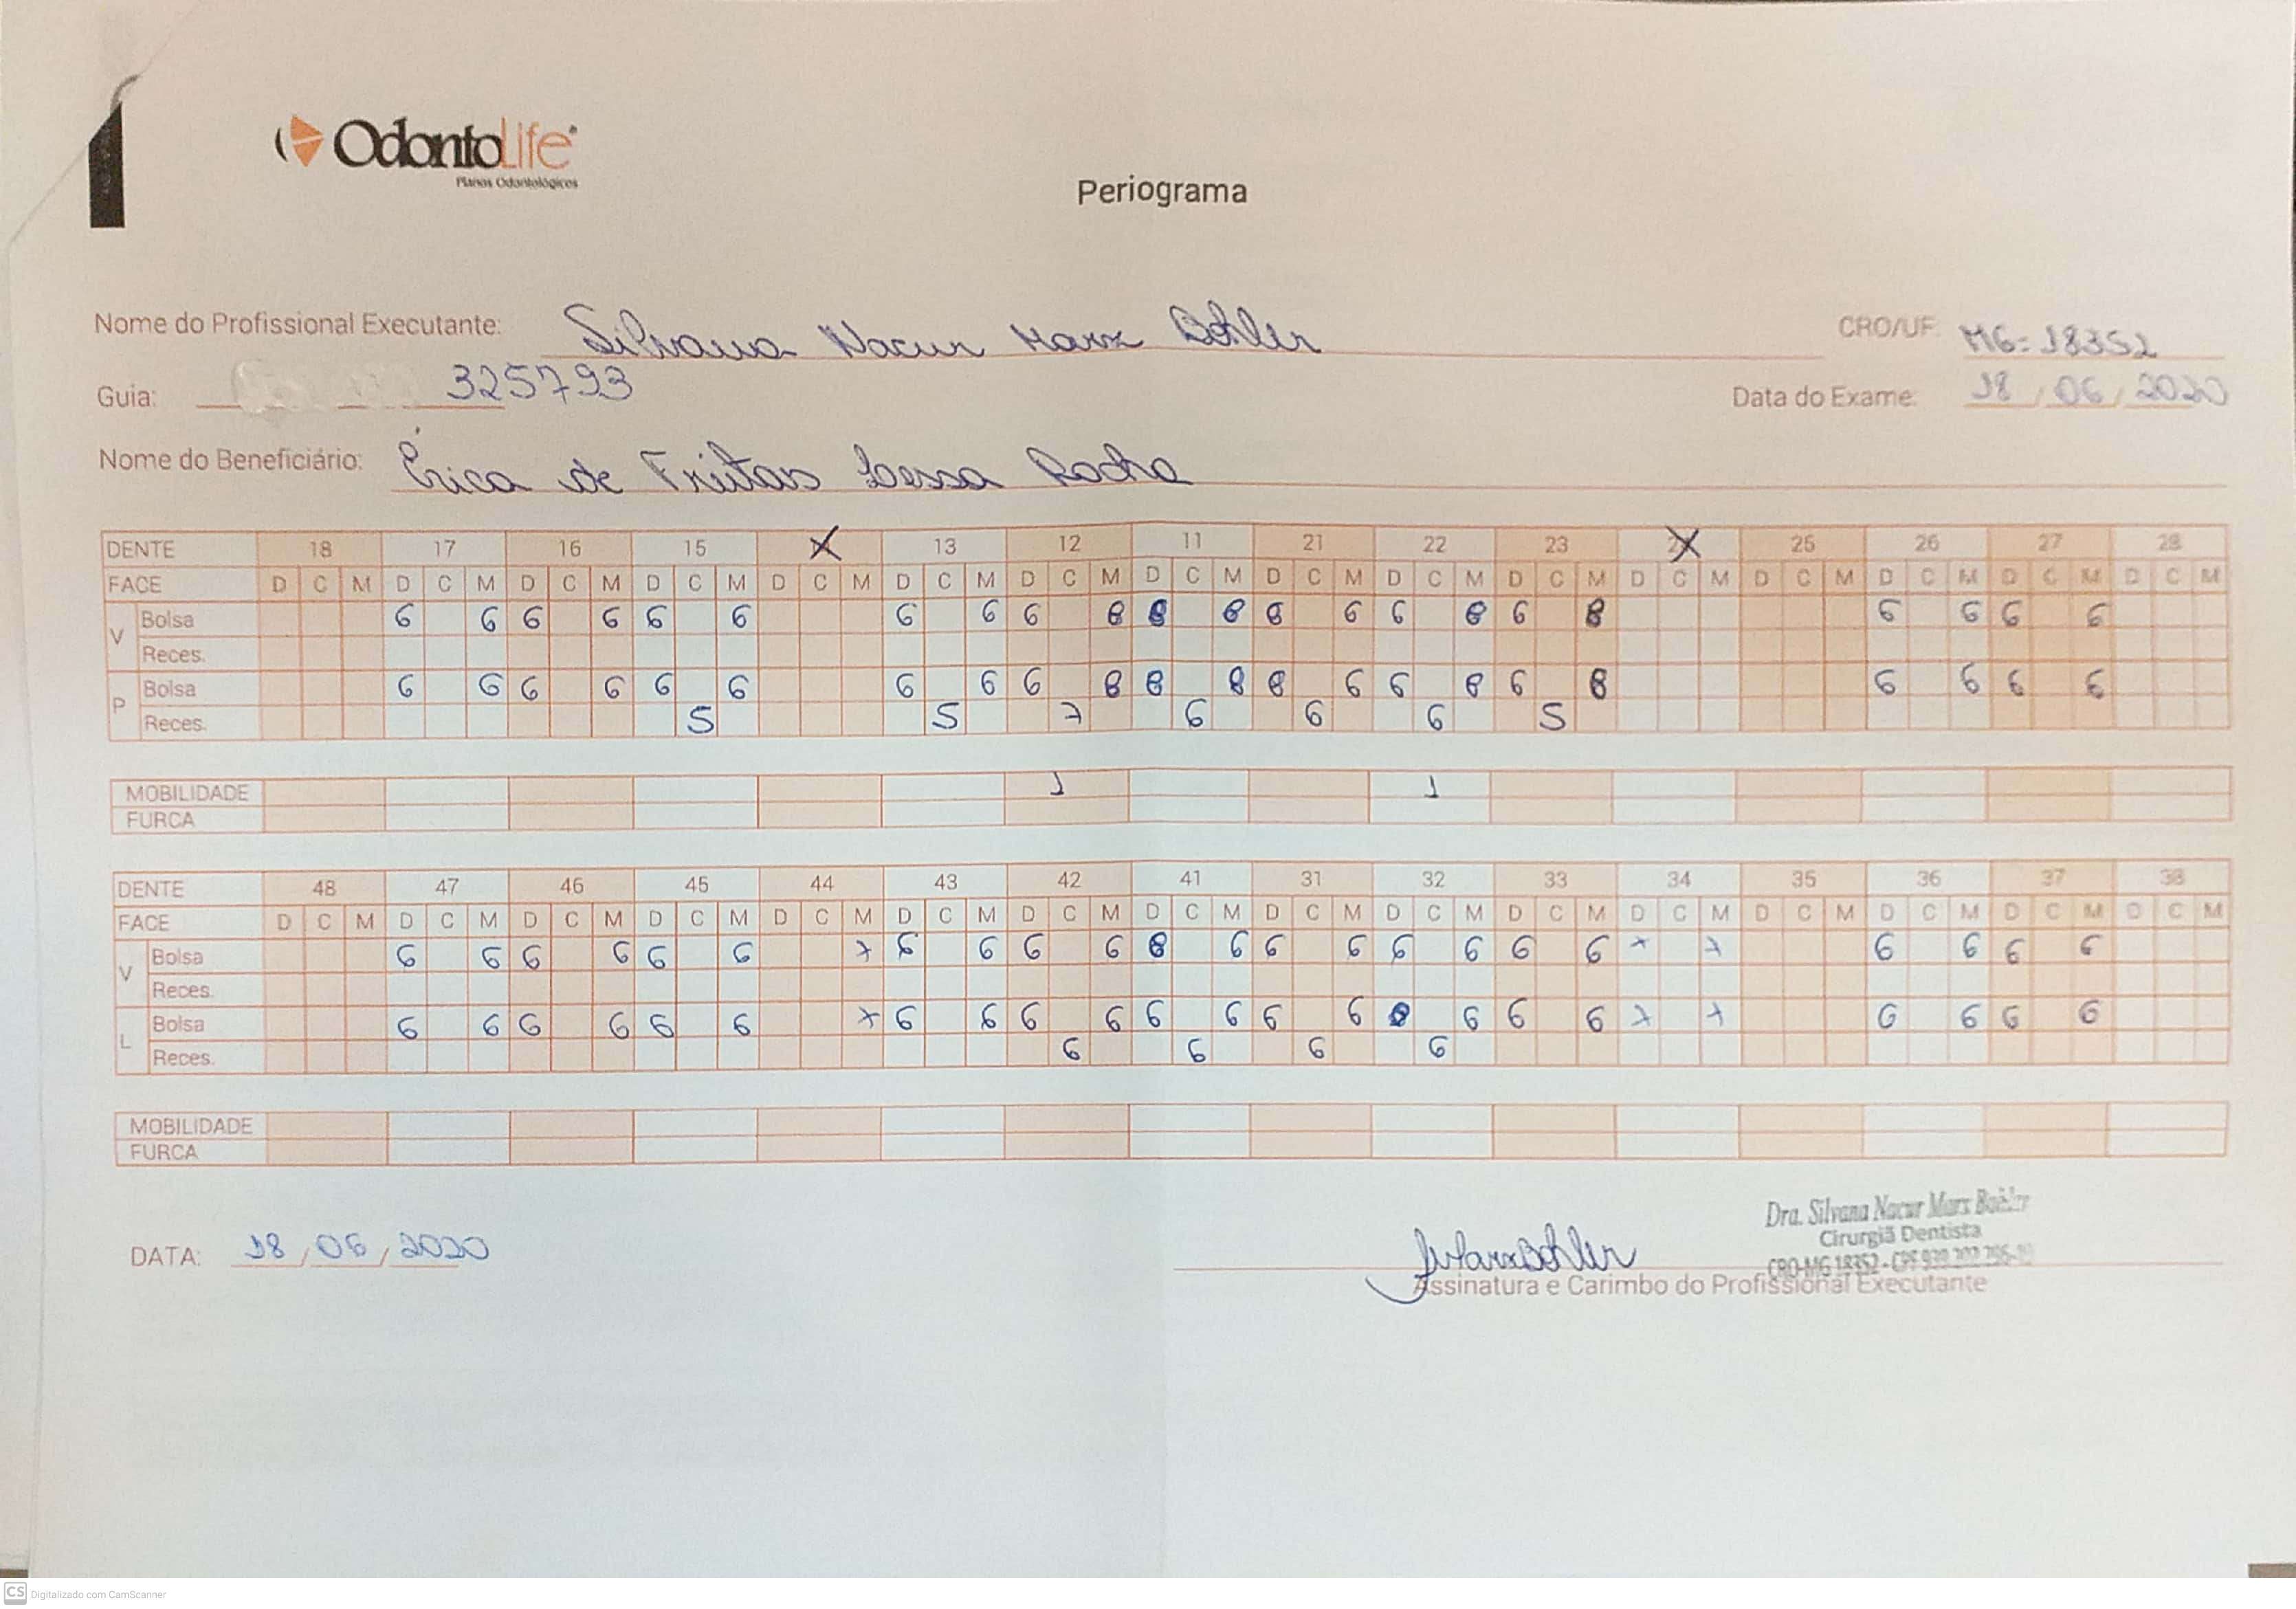 OdontoLife®
Planos Odontológicos
Periograma
Nome do Profissional Executante: Silvana Nacur Marx Böhler CRO/UF: MG-18352
Guia: 325793 Data do Exame: 18/06/2020
Nome do Beneficiário: Érica de Freitas Lessa Rocha
DENTE 18 17 16 15 X 13 12 11 21 22 23 X 25 26 27 28
FACE D C M D C M D C M D C M D C M D C M D C M D C M D C M D C M D C M D C M D C M D C M D C M D C M
V Bolsa 6 6 6 6 6 6 6 6 6 8 8 8 8 6 6 8 6 8 6 6 6 6
Reces.
P Bolsa 6 6 6 6 6 6 6 6 6 8 8 8 8 6 6 8 6 8 6 6 6 6
Reces. 5 5 7 6 6 6 5
MOBILIDADE 1 1
FURCA
DENTE 48 47 46 45 44 43 42 41 31 32 33 34 35 36 37 38
FACE D C M D C M D C M D C M D C M D C M D C M D C M D C M D C M D C M D C M D C M D C M D C M D C M
V Bolsa 6 6 6 6 6 6 7 6 6 6 6 8 6 6 6 6 6 6 6 7 7 6 6 6 6
Reces.
L Bolsa 6 6 6 6 6 6 7 6 6 6 6 6 6 6 6 8 6 6 6 7 7 6 6 6 6
Reces. 6 6 6 6
MOBILIDADE
FURCA
Dra. Silvana Nacur Marx Boehler
Cirurgiã Dentista
CRO-MG 18352 - CPF
DATA: 18/06/2020
Assinatura e Carimbo do Profissional Executante
CS Digitalizado com CamScanner